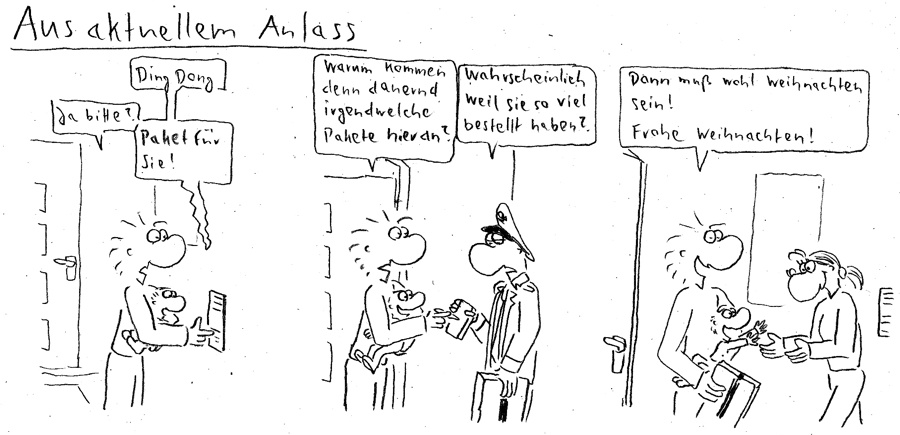 Aus aktuellem Anlass
Ding Dong
Ja bitte?
Paket für
Sie!
Warum kommen
denn dauernd
irgendwelche
Pakete hier an?
Wahrscheinlich
weil sie so viel
bestellt haben?
Dann muß wohl weihnachten
sein!
Frohe weihnachten!